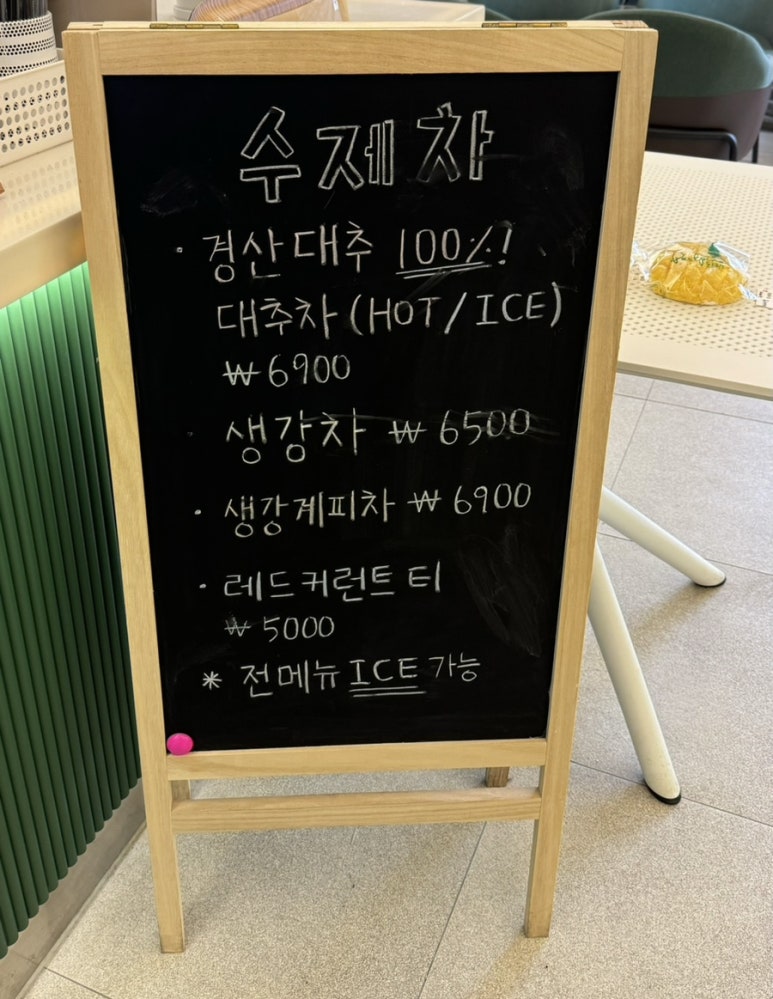 수제차
· 경산대추 100%!
대추차 (HOT/ICE)
₩6900
· 생강차 ₩6500
· 생강계피차 ₩6900
· 레드커런트 티
₩5000
* 전메뉴 ICE 가능